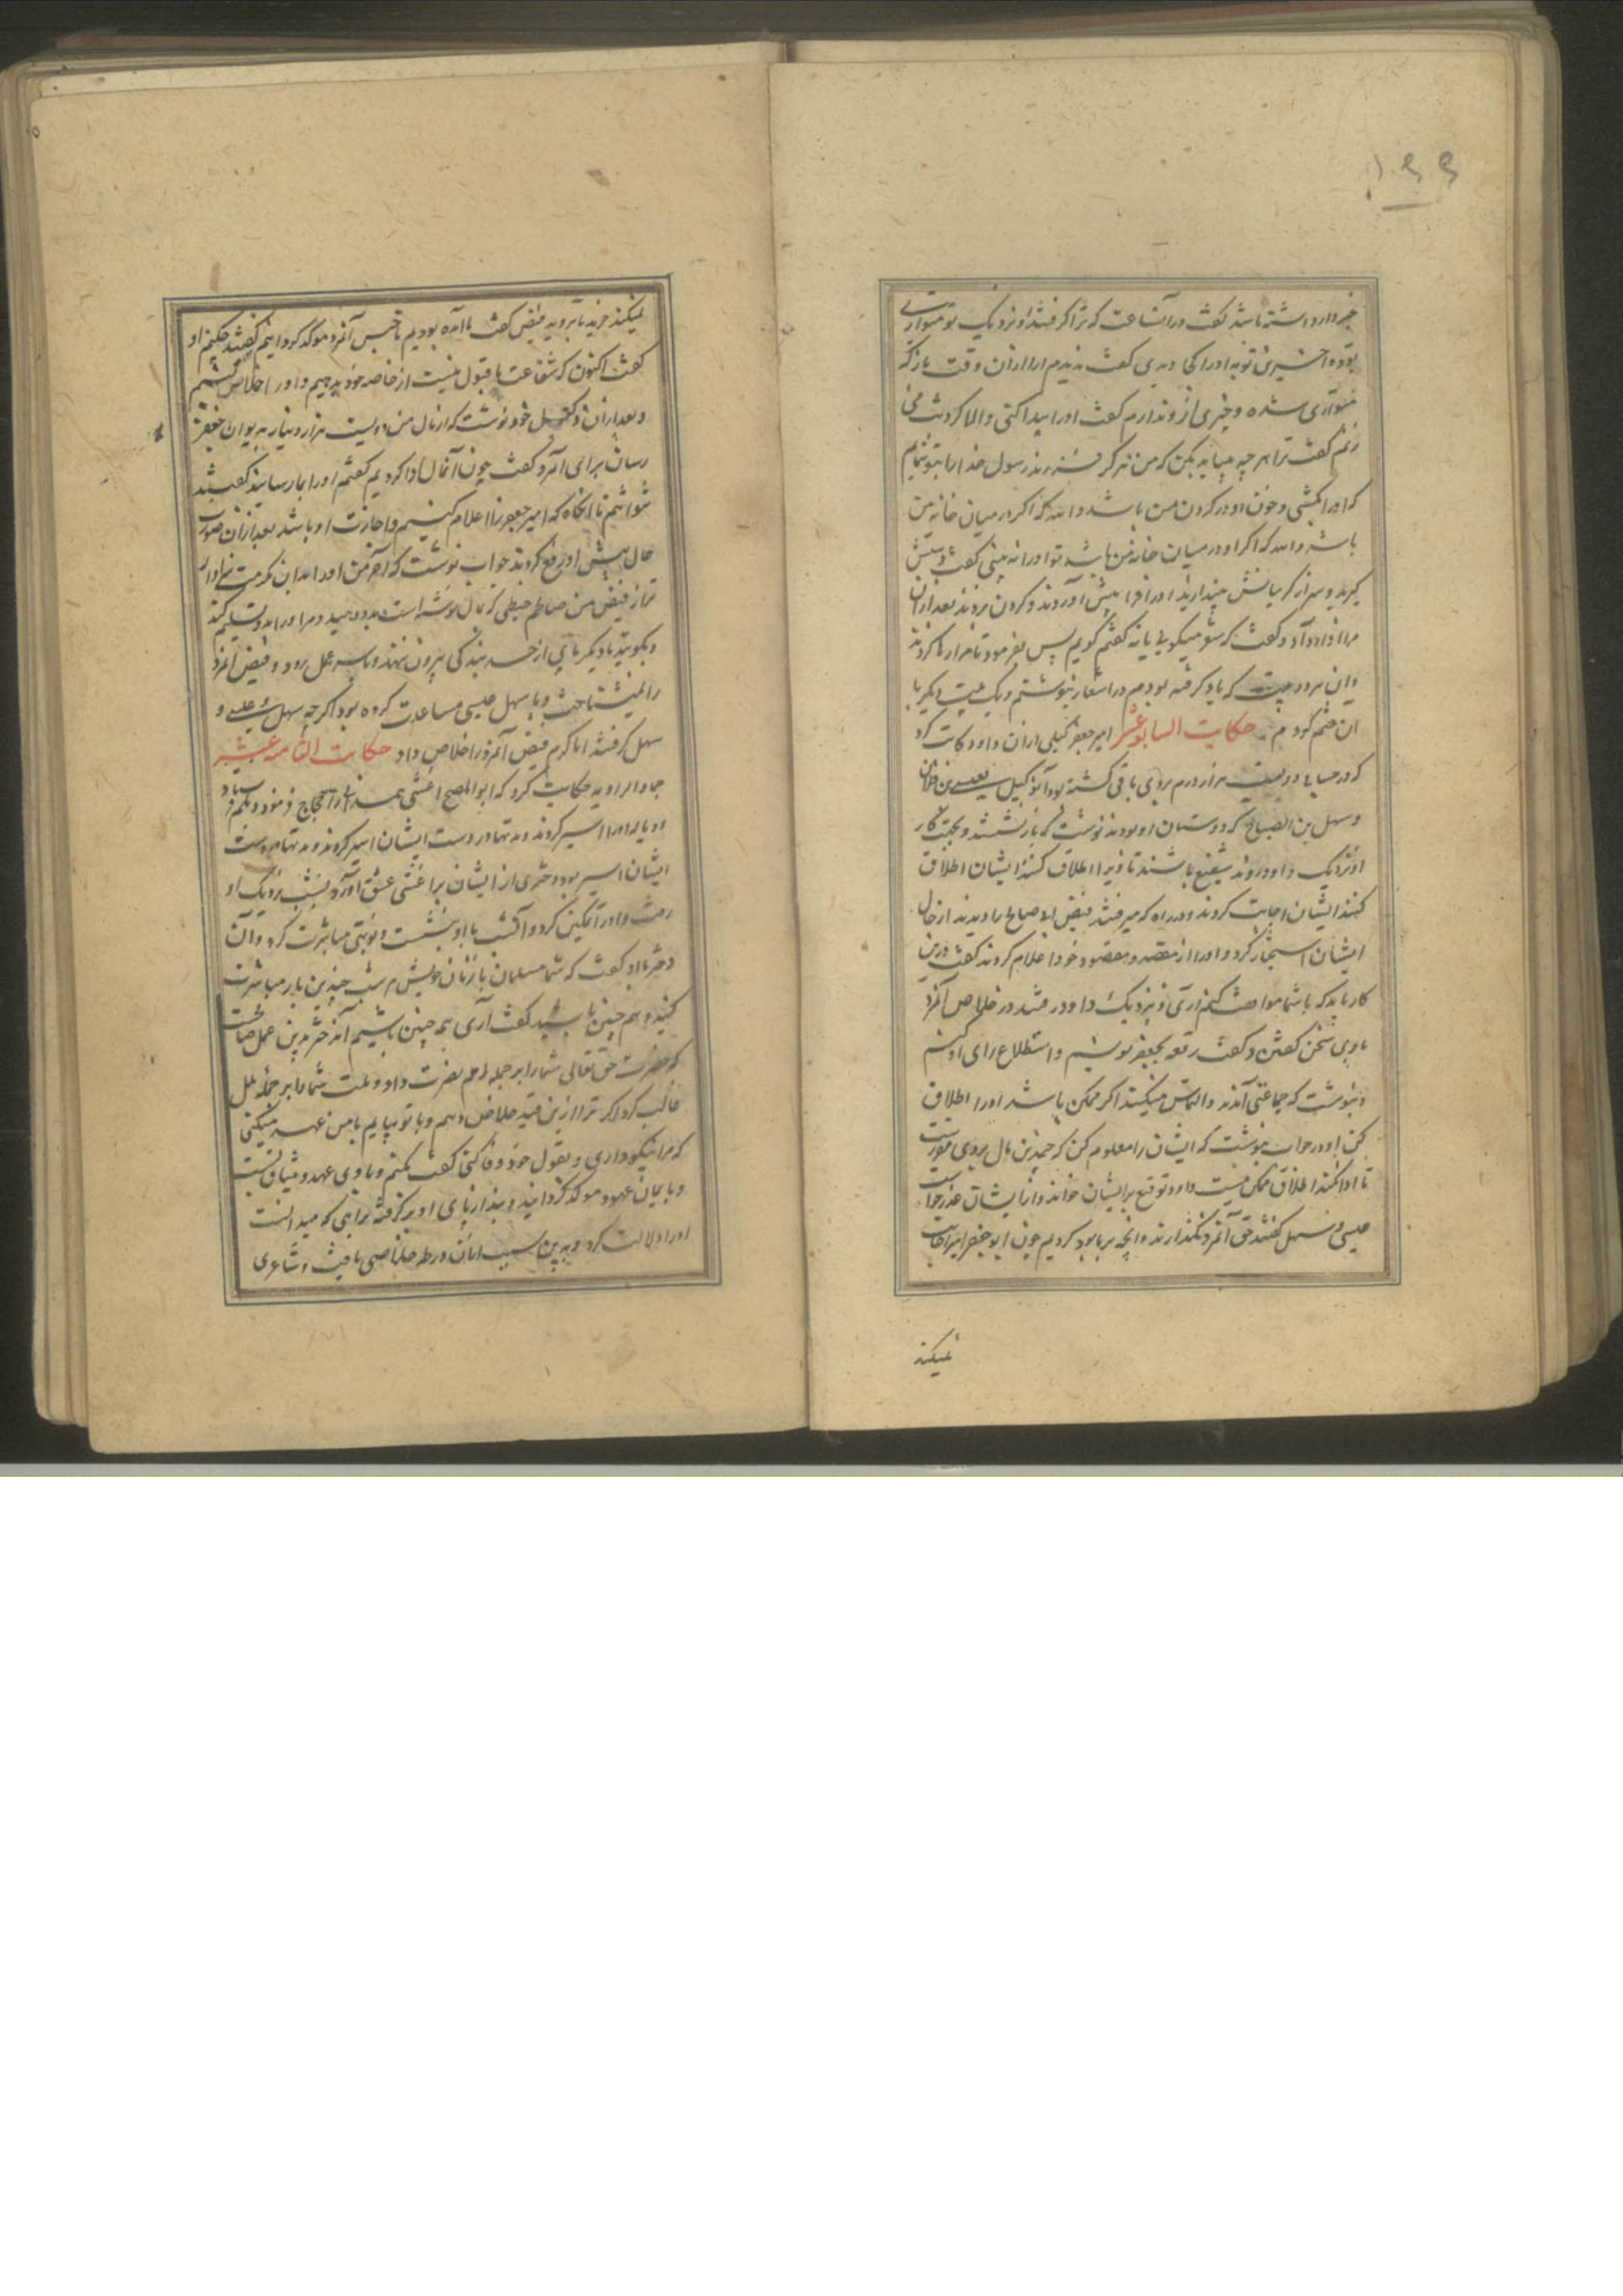 ۱۹۹
خبردار داشته باشد گفت در آن ساعت که ترا گرفتند او نزدیک تو متواری
بوده آخرین توبه او را کجا دیدی گفت ندیدم او را از آن وقت باز که
متواری شده و خبری ازو ندارم گفت او را پیدا کنی والا گردنت می
زنم گفت ترا هر چه میباید بکن که من هرگز فرزند رسول خدا را بتو ننمایم
که او را بکشی و خون او در گردن من باشد والله که اگر در میان خانه من
باشد والله که اگر او در میان خانه من باشد تو او را نه بینی گفت
گیرید و سر از گریبانش بیندازید او را فرا پیش آوردند و گردن بزدند بعد از آن
مرا آواز داد و گفت که شعر میگویی یا نه گفتم گویم پس بفرمود تا مرا رها کردند
و آن هر دو بیت که یاد گرفته بودم در اشعار نبوشتم و یک بیت دیگر با
آن ضم کردم حکایت السابع عشر امیر جعفر گیلی از آن داود کاتب کرد
که در حساب دویست هزار درم بروی باقی گشته بود آن وکیل بعیسی بن فلان
و سهل بن الصباح که دوستان او بودند نوشت که بار نشستند و بجهت کار
او نزدیک داود روند شفیع باشند تا ویرا اطلاق کنند ایشان اطلاق
کنند ایشان اجابت کردند و در راه که میرفتند فیض ابی صالح را دیدند از حال
ایشان استخبار کرد و او را از مقصد و مقصود خود اعلام کردند گفت درین
کار باید که با شما موافقت کنم آری و نزدیک داود رفتند در خلاص آنمرد
با وی سخن گفتن و گفت رقعه بجعفر نویسم و استطلاع رای او کنم
و نبوشت که جماعتی آمدند و التماس میکنند اگر ممکن باشد او را اطلاق
کن او در جواب نبوشت که ایشان را معلوم کن که چندین مال بروی متوجه است
تا ادا نکند اطلاق ممکن نیست داود توقیع بر ایشان خواند و از ایشان عذر خواست
عیسی و سهل گفتند حق آنمرد بگذاردند و آنچه بر ما بود کردیم چون ابو جعفر اجابت
نمیکند
نمیکند خیزید تا برویم فیض گفت ما آمده بودیم تا حبس آنمرد موکد گردانیم گفتند چکنیم او
گفت اکنون که شفاعت ما قبول نیست از خاصه خود بدهیم و او را خلاص کنیم
و بعد از آن وکیل خود نوشت که از مال من دویست هزار دینار به دیوان جعفر
رسان برای آنمرد گفت چون آن مال ادا کردیم گفتم او را بما رسانید گفت
نتوانم تا آنگاه که امیر جعفر را اعلام کنیم و اجازت او باشد بعد از آن صورت
حال پیش او رفع کردند جواب نوشت که آخر من اولا بدان مکرمت سزاوار
تر از فیض من صاحبم خطی که بمال نوشته است بدو دهید و مرا او را بدو تسلیم کنید
و بگویید تا دیگر پای از حد بندگی بیرون ننهد و با سر عمل رود و فیض آنمرد
را نمیشناخت و با سهل و عیسی مساعدت کرده بود اگر چه سهل و عیسی
سهل گرفتند اما کرم فیض آنمرد را خلاص داد حکایت الثامنه عشر
حماد الراویه حکایت کرد که ابو المصبح اعشی همدانی را حجاج فرمود و بدیلم فرستاد
و دیالمه او را اسیر کردند و مدتها در دست ایشان اسیر کردند و مدتها در دست
ایشان اسیر بود دختری از ایشان بر اعشی عشق آورد و شب نزدیک او
رفت و او را تمکین کرد و آن شب با او بنشست و نوبتی مباشرت کرد و آن
دختر با او گفت که شما مسلمانان با زنان خویش هر شب چندین بار مباشرت
کنید و هم چنین باشید گفت آری همه چنین باشیم آن دختر گفت بدین عمل صاحب
که حضرت حق تعالی شما را بر جمله امم نصرت داد و ملت شما را بر جمله ملل
غالب کرد اگر ترا ازین قید خلاص دهم و با تو بیایم با من عهد میکنی
که مرا نیکو داری و بقول خود وفا کنی گفت بکنم و با وی عهد و میثاق بست
و با یمان عهود موکد گردانید و بند از پای او بر گرفت و براهی که میدانست
او را دلالت کرد و بدین سبب امان از ورطه خلاصی یافت و شاعری